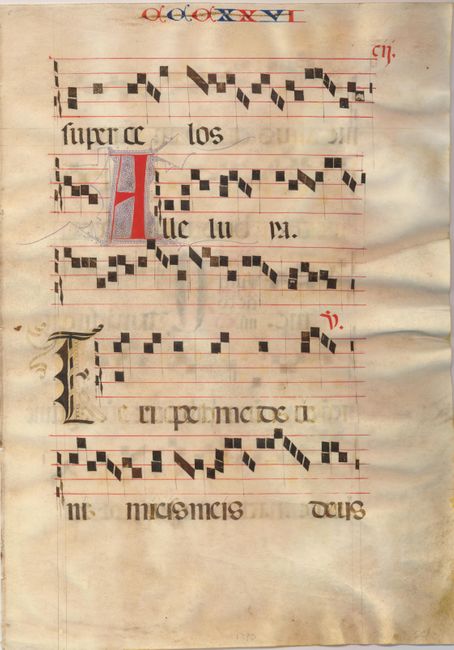 CCCXXVI
cij.
super ce los
Alle lu ya.
℣.
E e ri pe me de i
ni micis meis deus